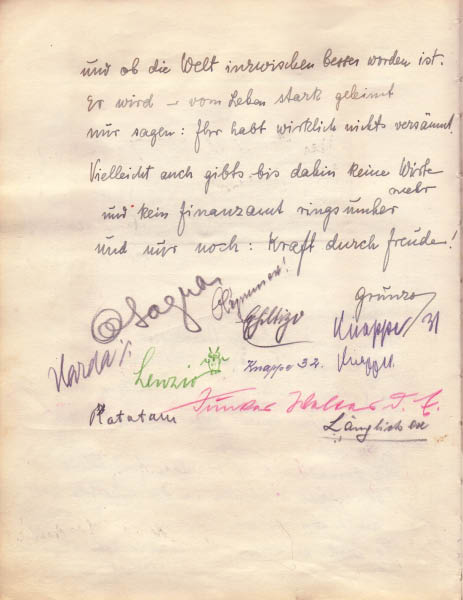 und ob die Welt inzwischen besser worden ist.
Er wird – vom Leben stark geleimt
nur sagen: Ihr habt wirklich nichts versäumt.
Vielleicht auch gibts bis dahin keine Wirte
mehr
und kein Finanzamt ringsumher
und nur noch: Kraft durch Freude!
Sagra
Grunzo
Knappe 31
Harda
Lenzio
Knappe 32.
Knappe
Ratatam
Junker D. E.
Länglich